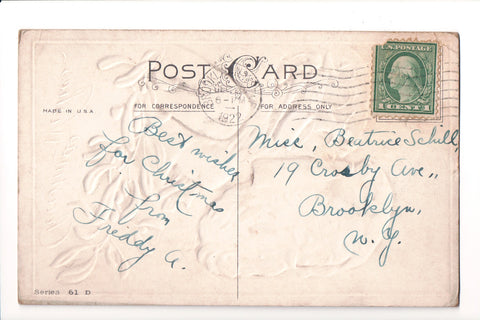 POST CARD
U.S. POSTAGE
1 CENT 1
MADE IN U.S.A
FOR CORRESPONDENCE
FOR ADDRESS ONLY
1922
Best wishes
for Christmas
from
Freddy A.
Miss, Beatrice Schill,
19 Crosby Ave.,
Brooklyn,
N.Y.
Series 61 D